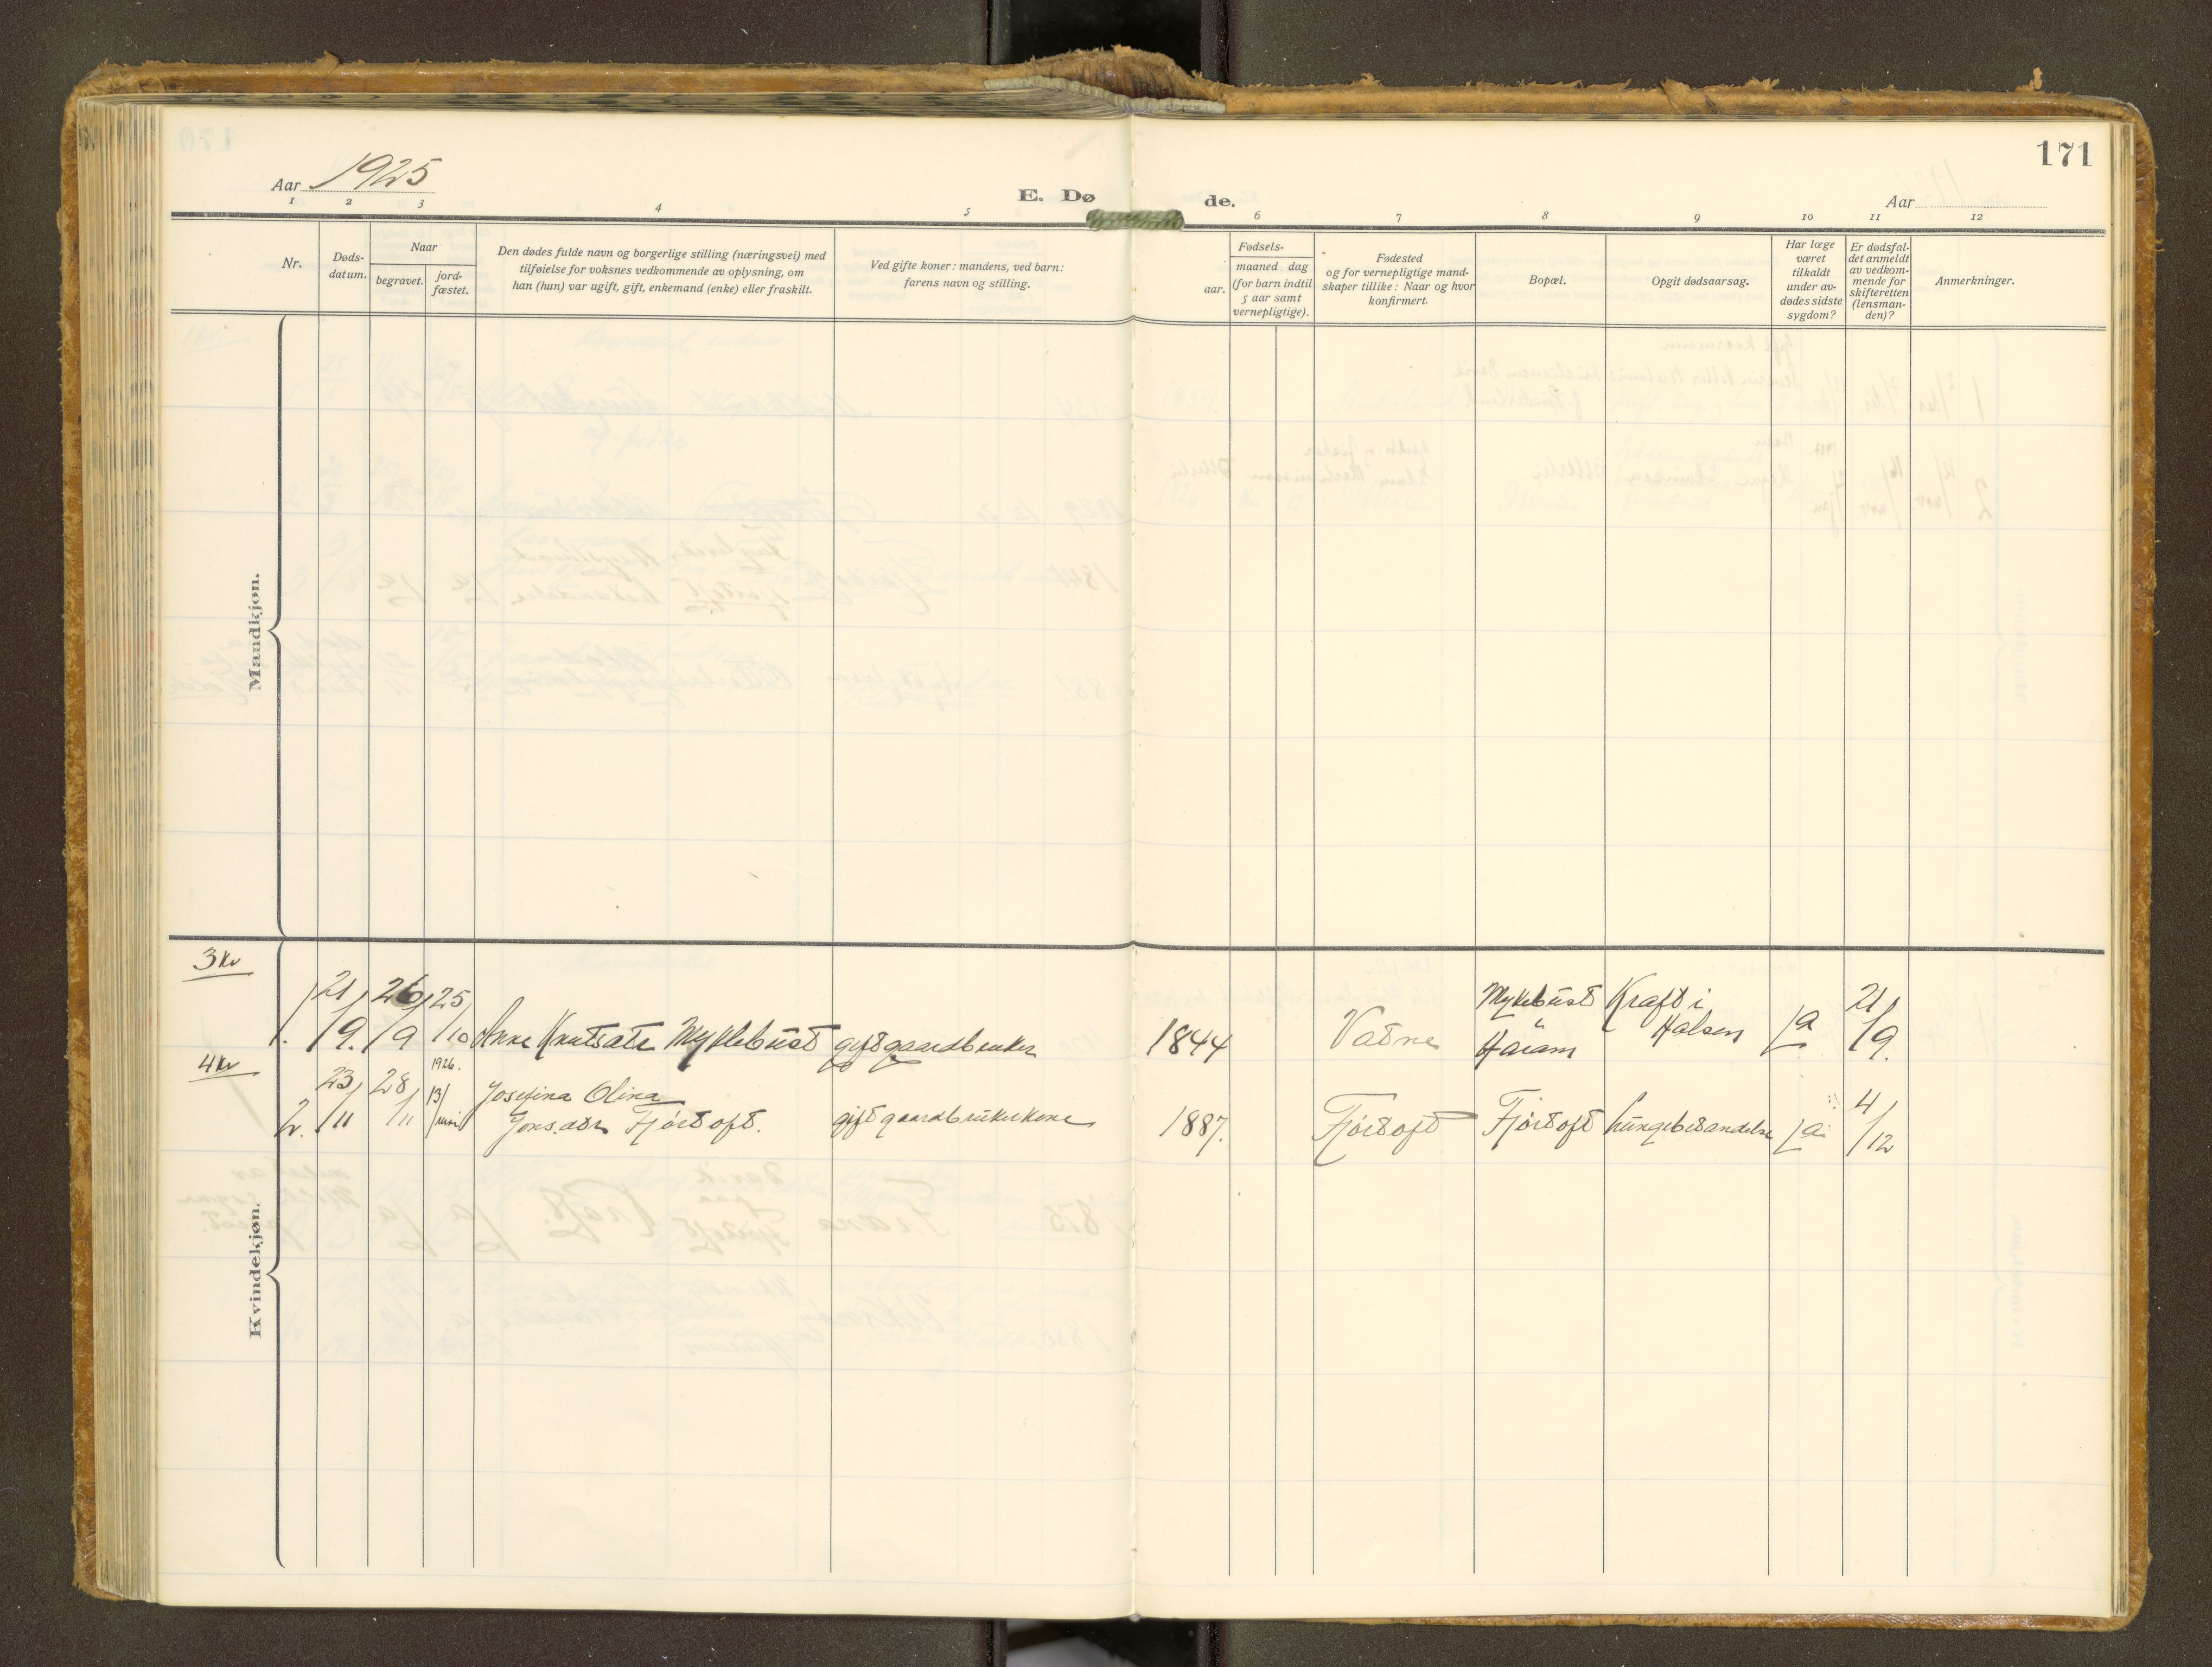 171
Aar 1925
E. Døde.
Aar
1 2 3 4 5 6 7 8 9 10 11 12
Nr.
Døds-
datum.
Naar
begravet.
jord-
fæstet.
Den dødes fulde navn og borgerlige stilling (næringsvei) med
tilføielse for voksnes vedkommende av oplysning, om
han (hun) var ugift, gift, enkemand (enke) eller fraskilt.
Ved gifte koner: mandens, ved barn:
farens navn og stilling.
Fødsels-
aar.
maaned dag
(for barn indtil
5 aar samt
vernepligtige).
Fødested
og for vernepligtige mand-
skaper tillike: Naar og hvor
konfirmert.
Bopæl.
Opgit dødsaarsag.
Har læge
været
tilkaldt
under av-
dødes sidste
sygdom?
Er dødsfal-
det anmeldt
av vedkom-
mende for
skifteretten
(lensman-
den)?
Anmerkninger.
Mandkjøn.
Kvindekjøn.
3 kv
1. 21/9. 26/9 25/10 Anne Knutsatr Myklebust gift gaardbruker 1844 Vatne Myklebust
Haram Kraft i
Halsen ja 21/9.
4 kv
2. 23/11 28/11 1926.
13/juni Josefina Olina
Jons.atr Fjørtoft. gift gaardbrukerkone 1887. Fjørtoft Fjørtoft lungebetændelse ja 4/12